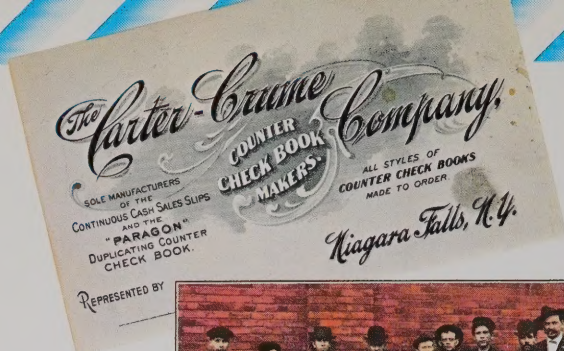 The Carter-Crume Company,
COUNTER
CHECK BOOK
MAKERS.
SOLE MANUFACTURERS
OF THE
CONTINUOUS CASH SALES SLIPS
AND THE
"PARAGON"
DUPLICATING COUNTER
CHECK BOOK.
ALL STYLES OF
COUNTER CHECK BOOKS
MADE TO ORDER.
Niagara Falls, N.Y.
REPRESENTED BY